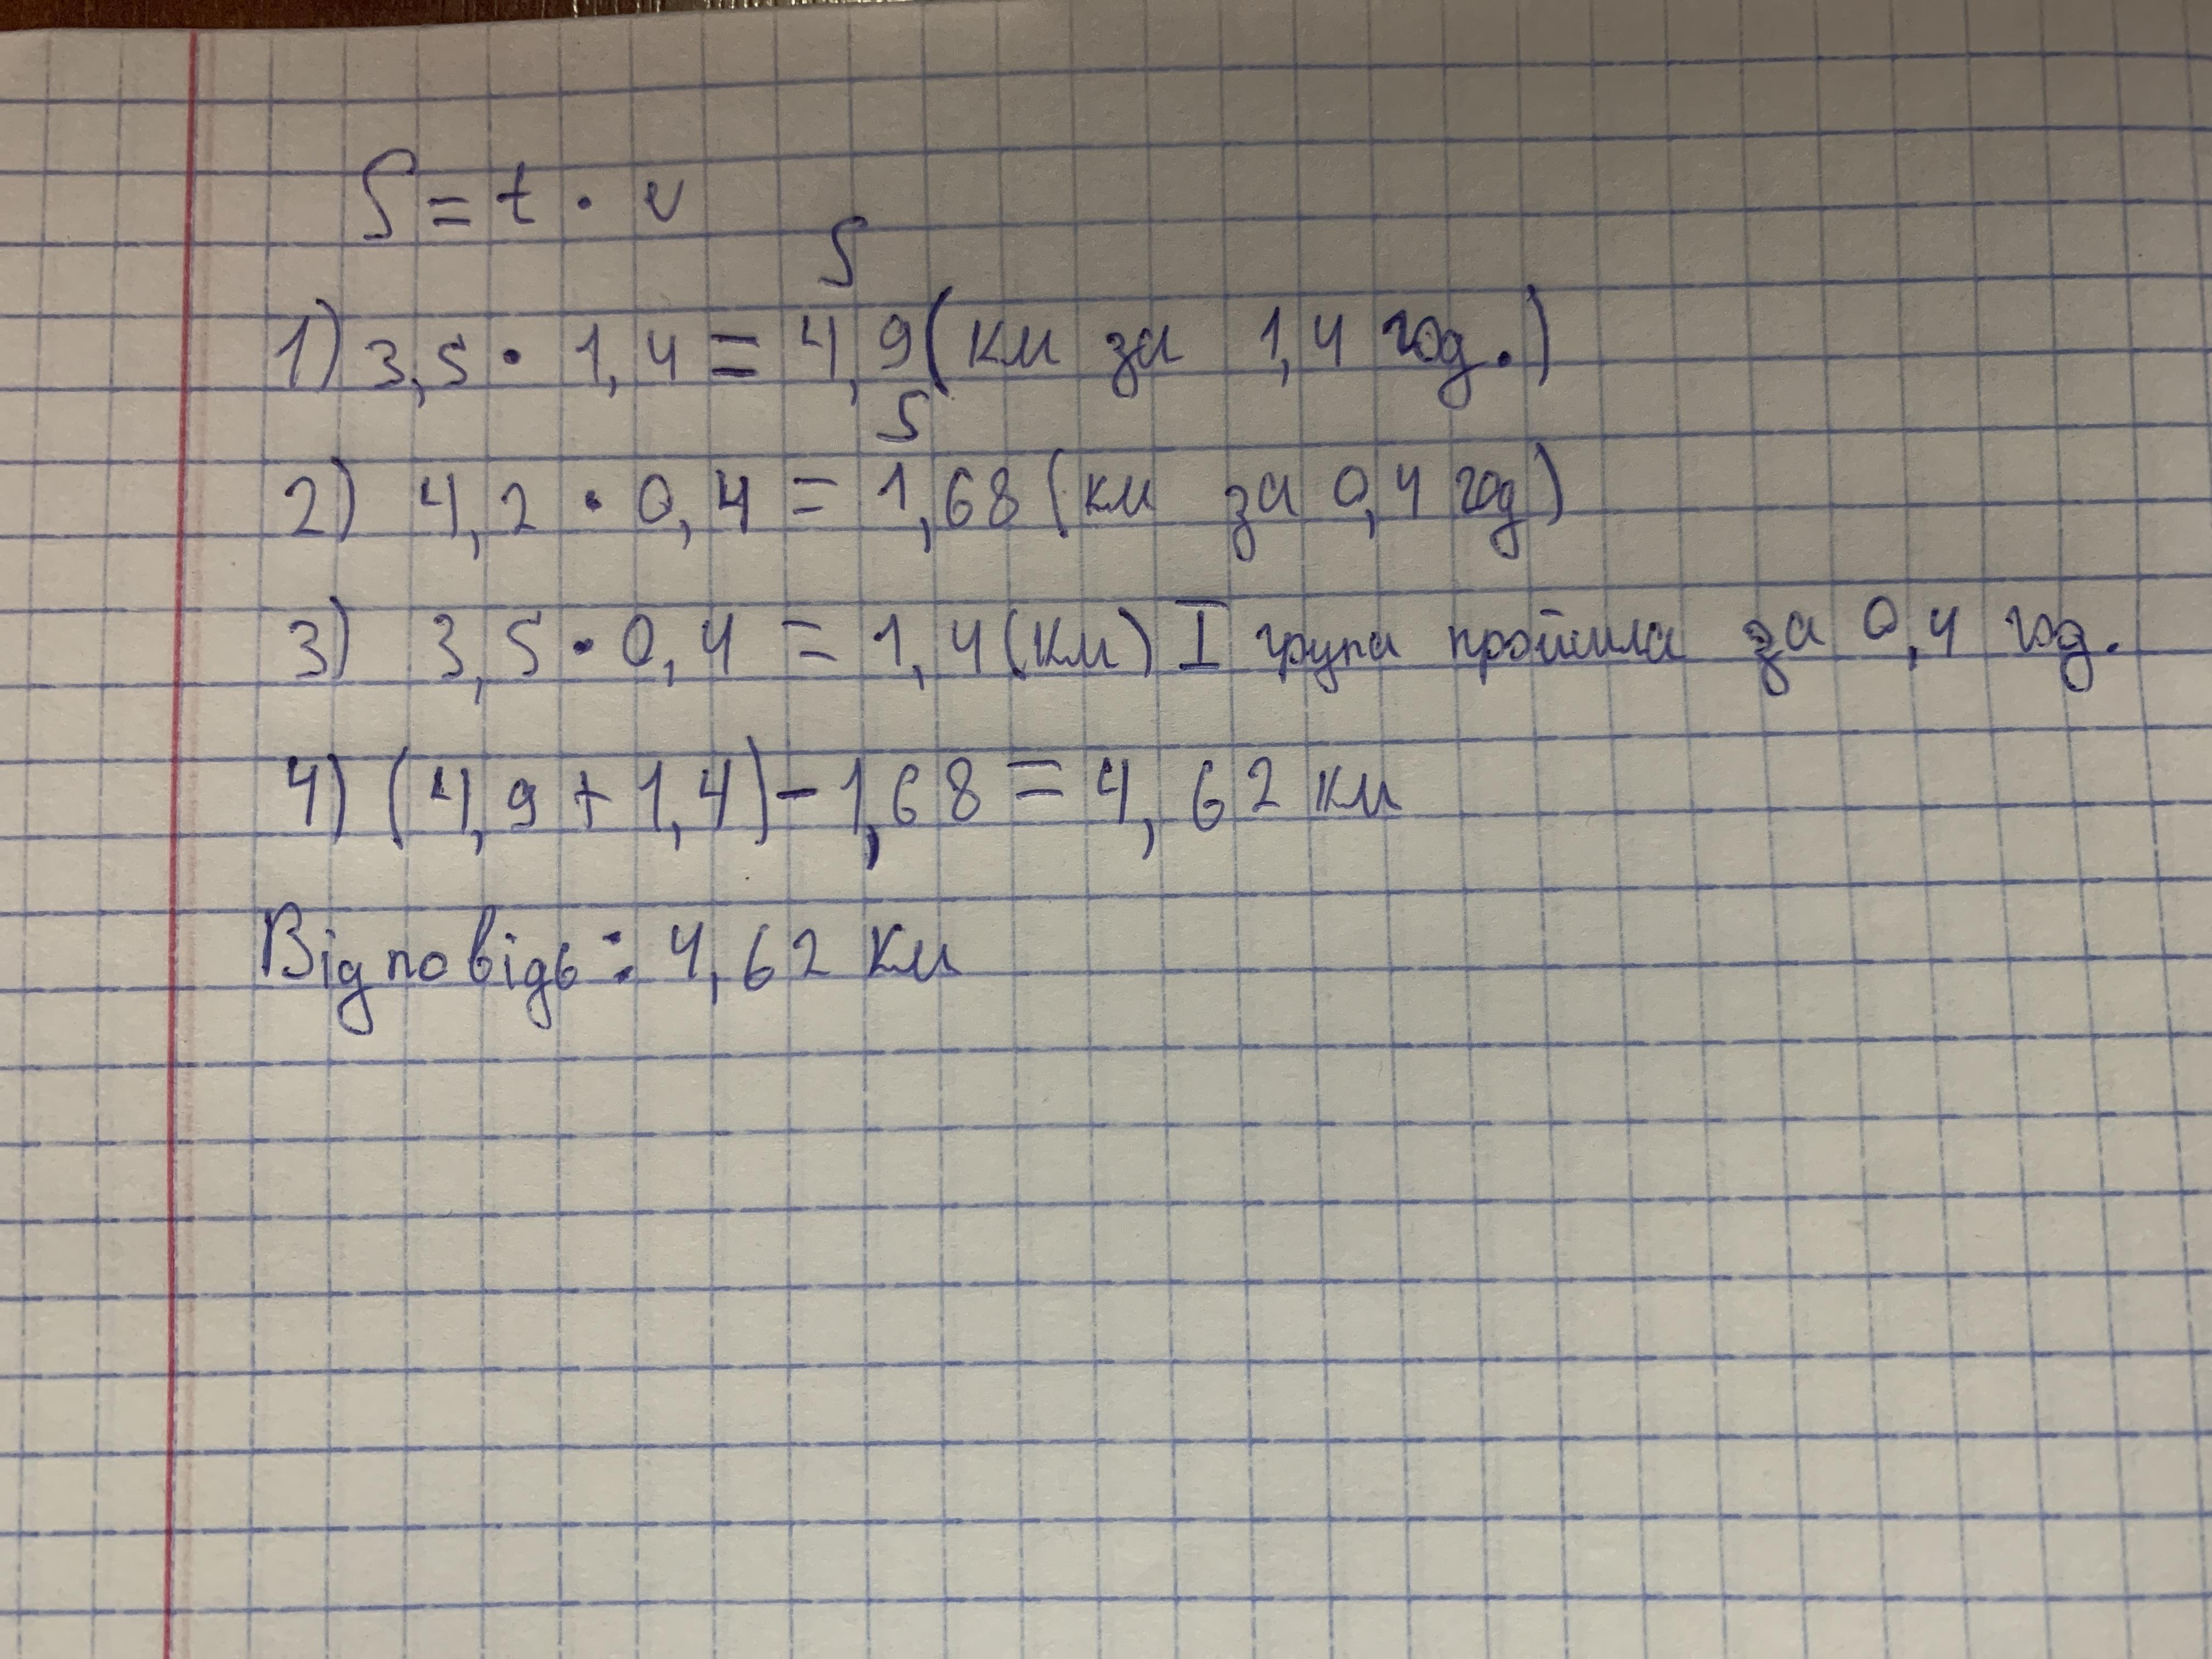 S = t · v
S
1) 3,5 · 1,4 = 4,9 (км за 1,4 год.)
S
2) 4,2 · 0,4 = 1,68 (км за 0,4 год)
3) 3,5 · 0,4 = 1,4 (км) I група пройшла за 0,4 год.
4) (4,9 + 1,4) - 1,68 = 4,62 км
Відповідь: 4,62 км